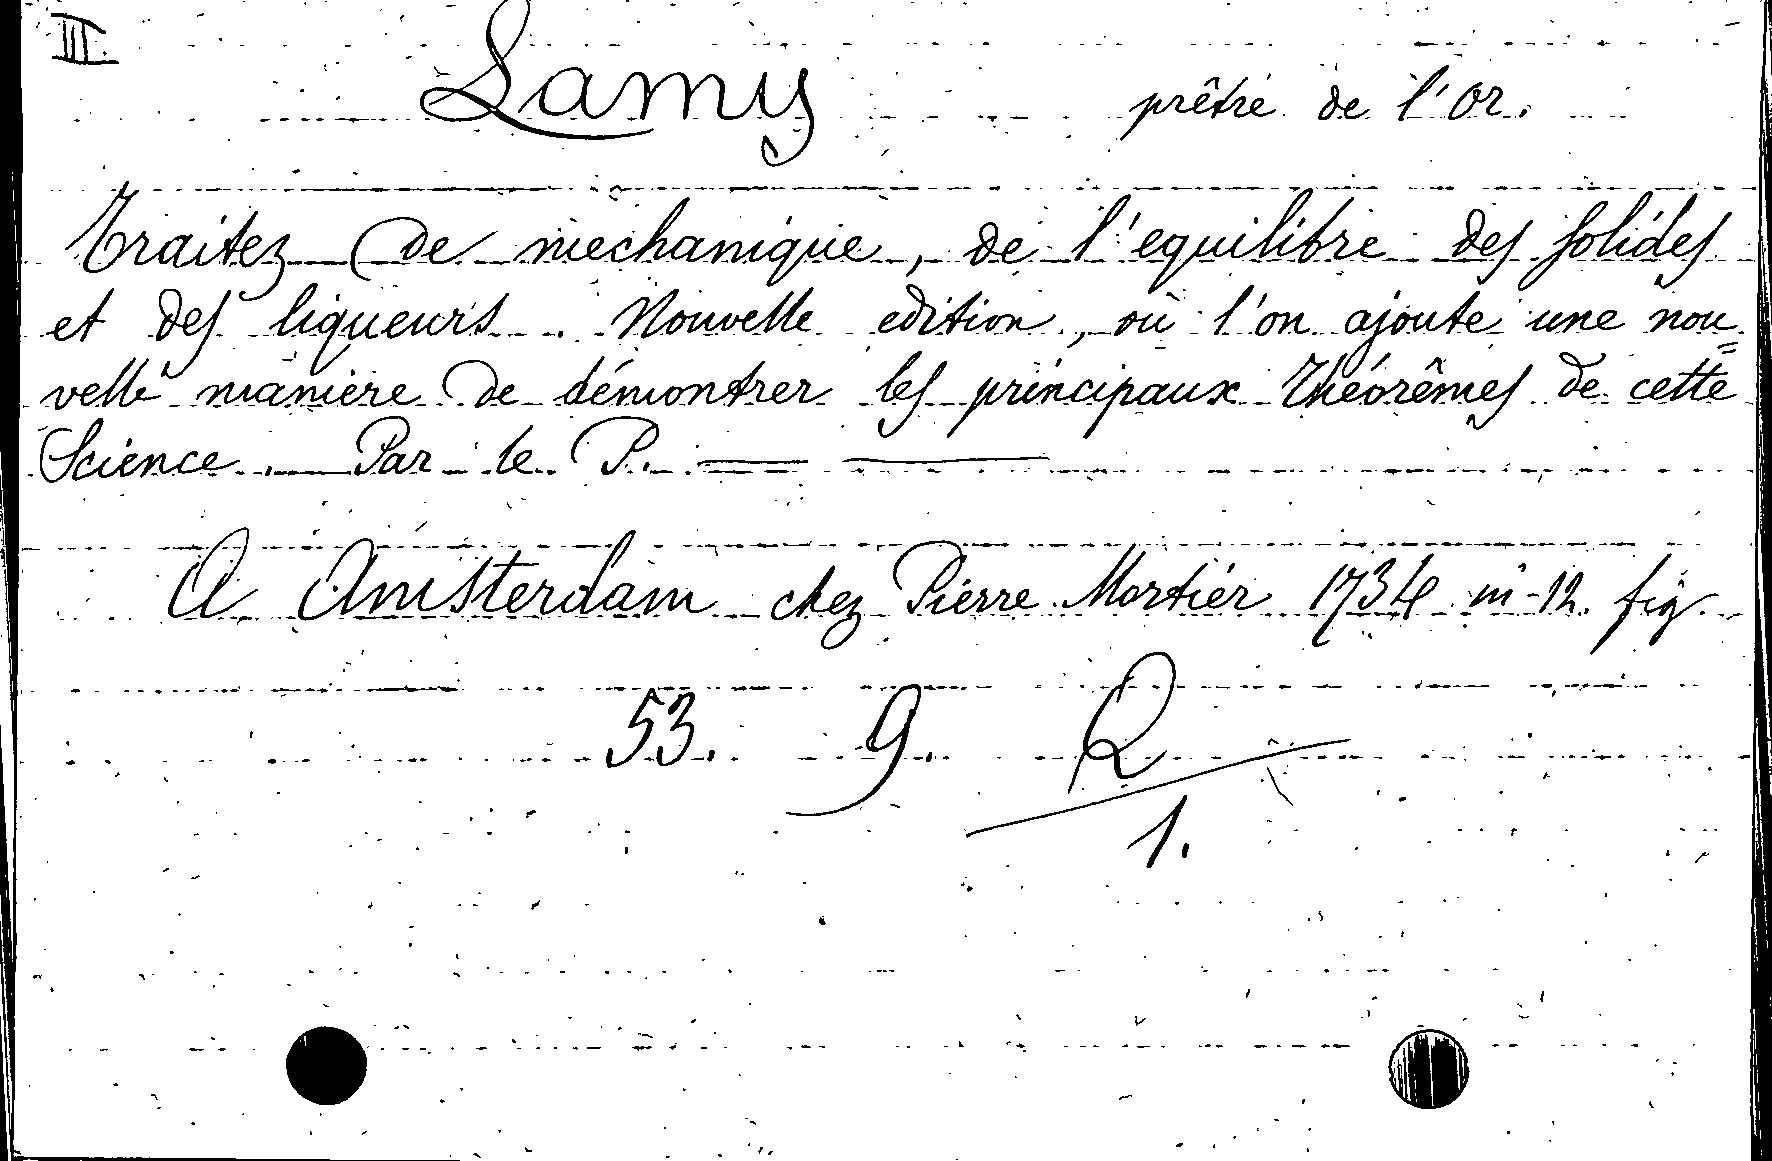 III.
Lamy prêtre de l'Or.
Traitez de mechanique, de l'equilibre des solides
et des liqueurs. Nouvelle edition, où l'on ajoute une nou=
velle maniere de démontrer les principaux Théorêmes de cette
Science. Par le P. — —
A Amsterdam chez Pierre Mortier 1734 in-12. fig.
53. 9. Q
1.